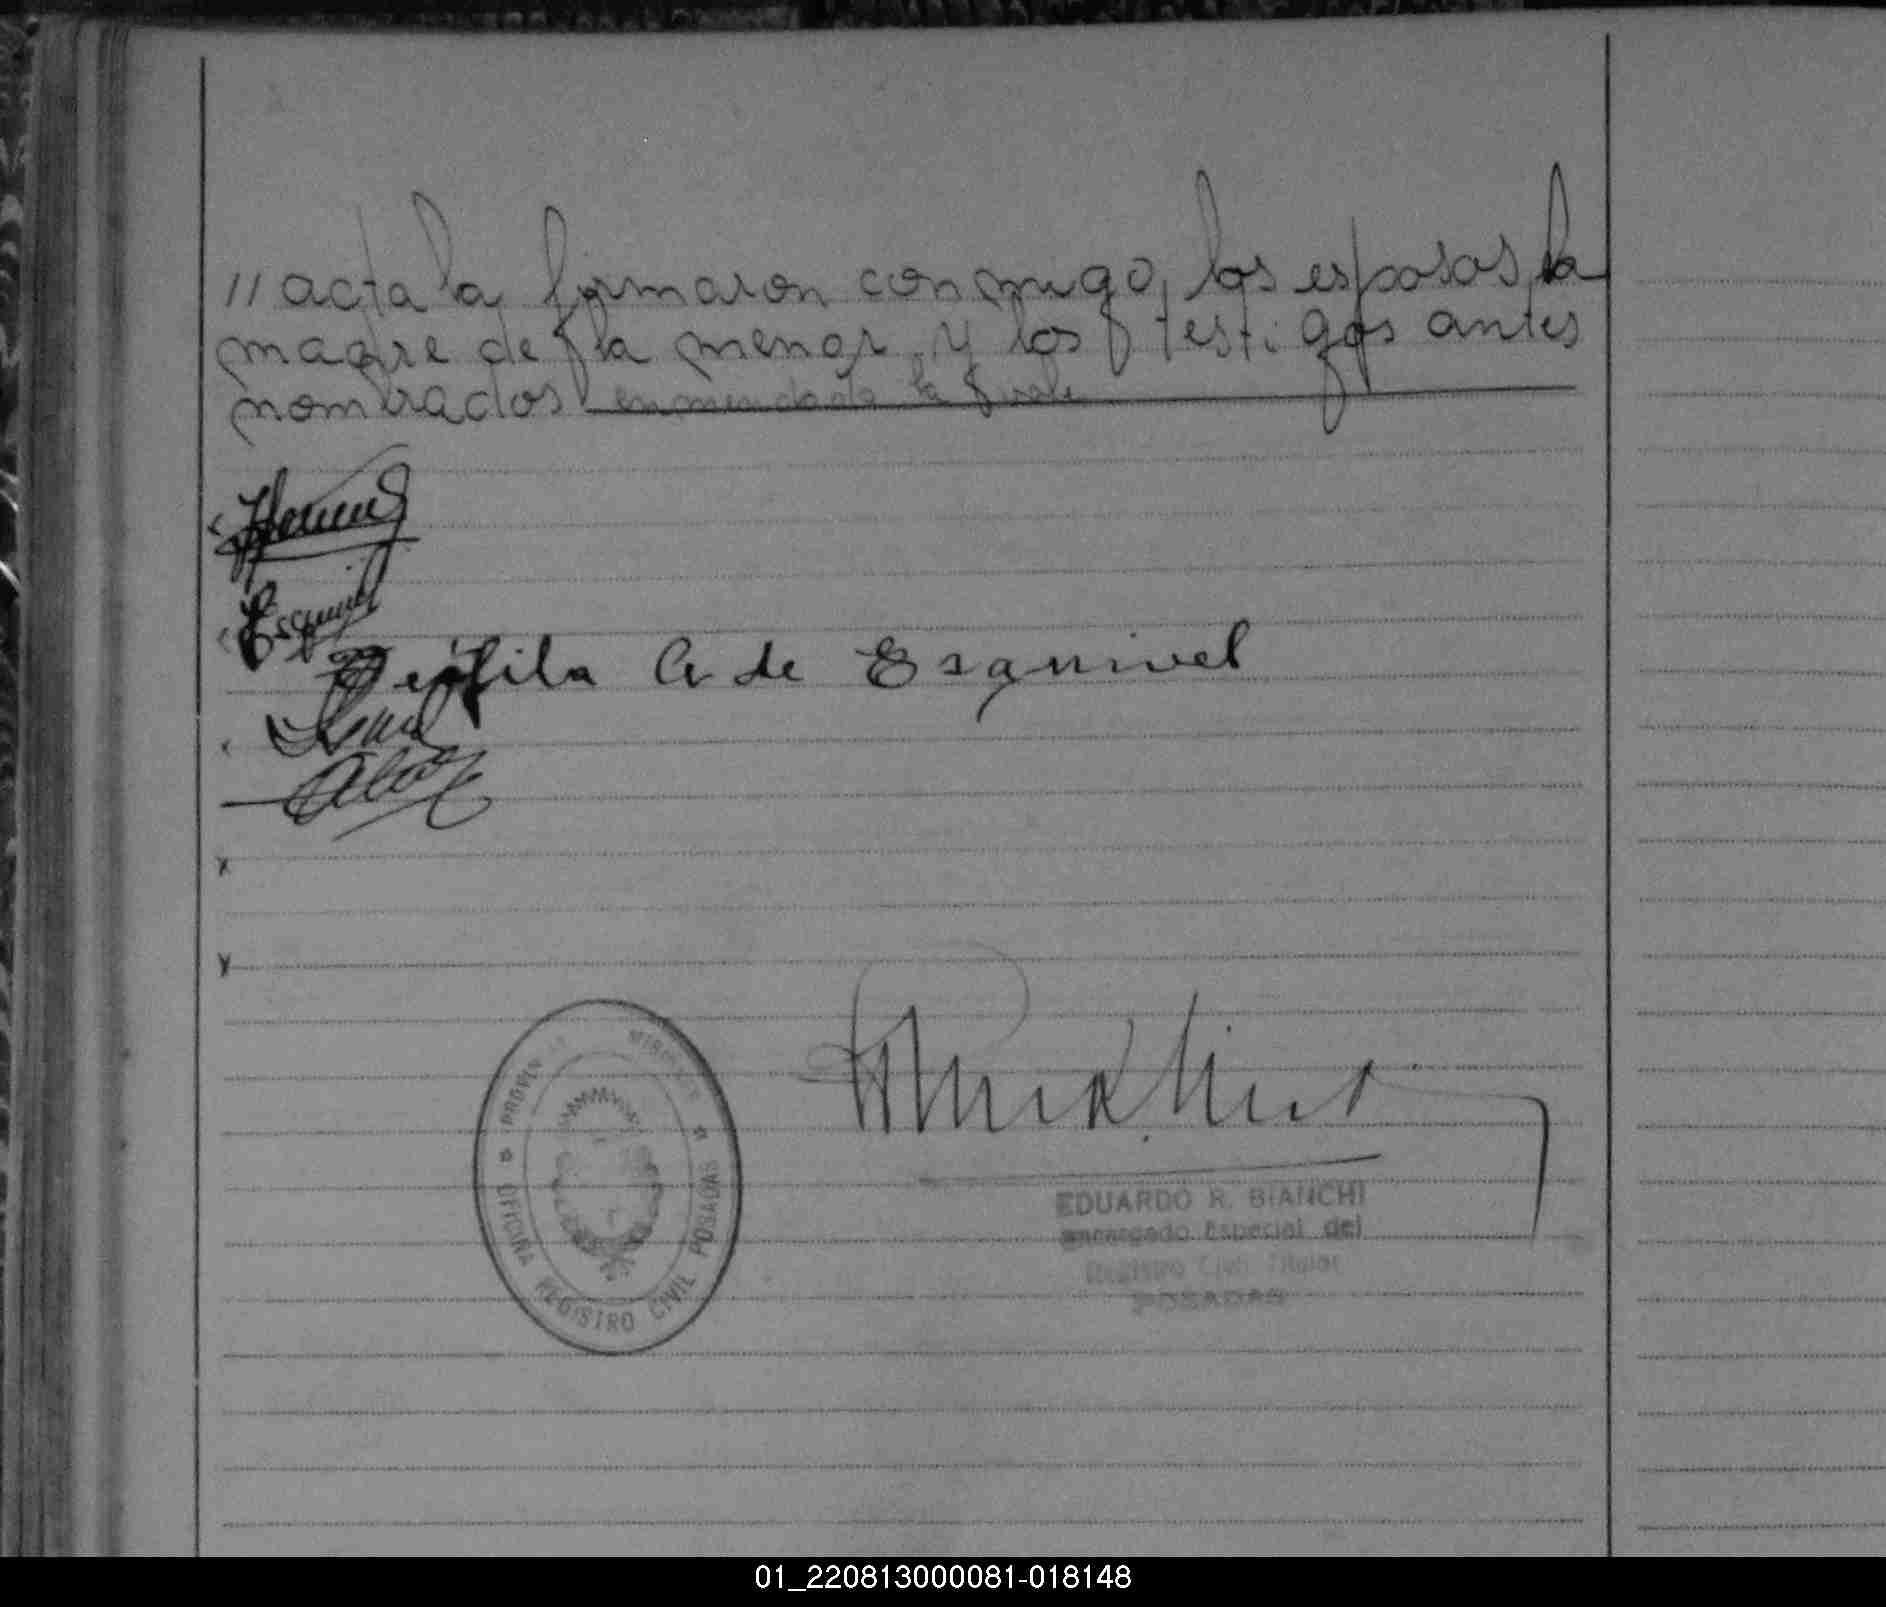 // acta la firmaron conmigo, los esposos, la
madre de la menor y los testigos antes
nombrados enmendado la vale
Esquivel
Teófila A de Esquivel
PROVINCIA MISIONES * OFICINA REGISTRO CIVIL POSADAS *
EDUARDO R. BIANCHI
Encargado Especial del
Registro Civil Titular
POSADAS
01_220813000081-018148